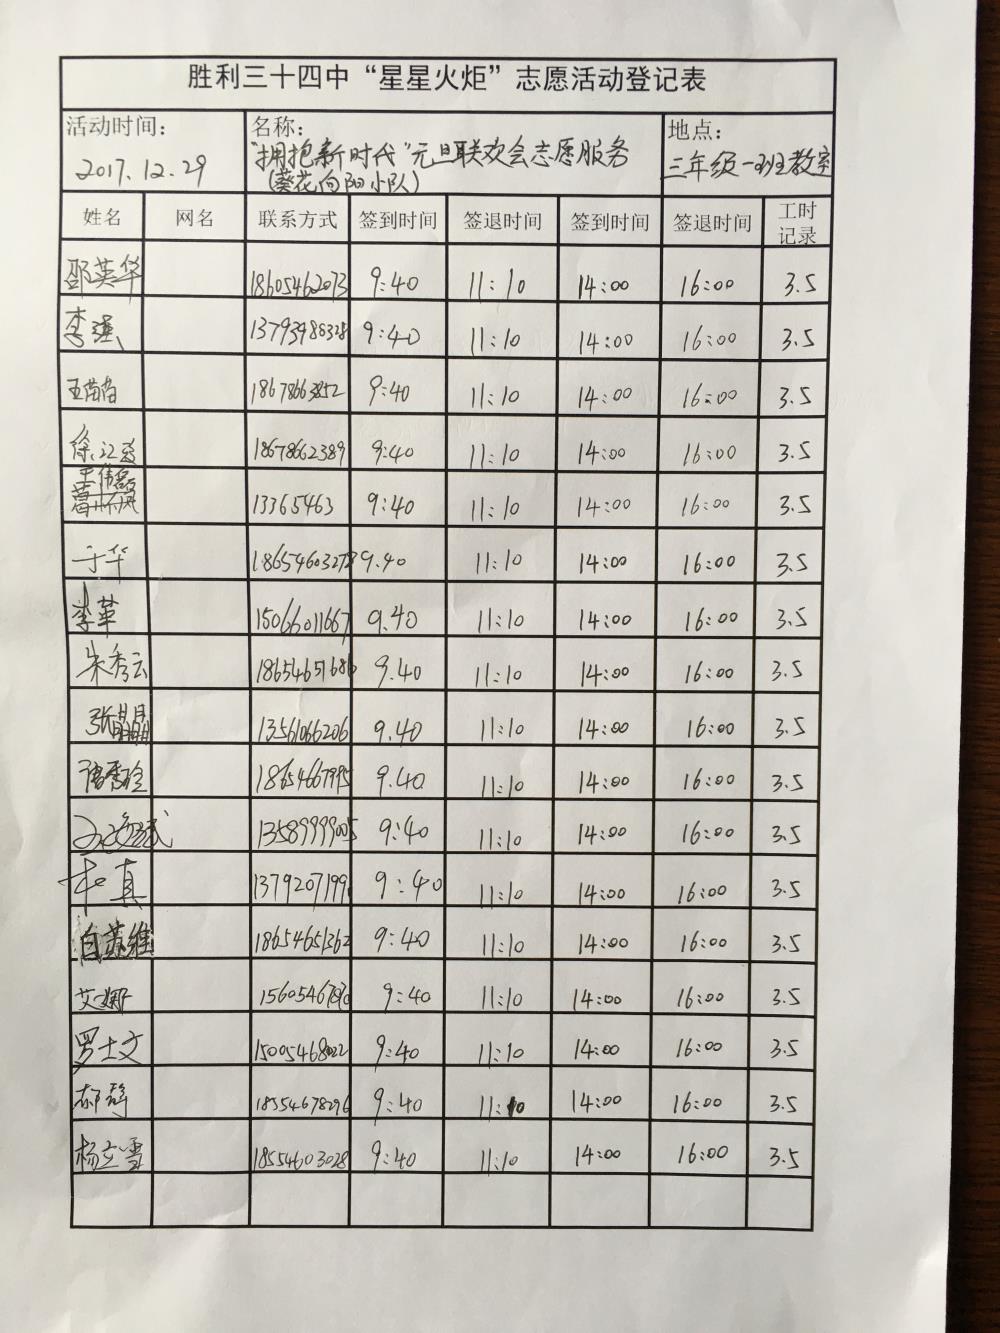 胜利三十四中“星星火炬”志愿活动登记表
活动时间: 名称: 地点:
2017.12.29 "拥抱新时代"元旦联欢会志愿服务 三年级一班教室
(葵花向阳小队)
姓名 网名 联系方式 签到时间 签退时间 签到时间 签退时间 工时记录
邵英华 18605462073 9:40 11:10 14:00 16:00 3.5
李强 13793986328 9:40 11:10 14:00 16:00 3.5
王苗苗 18678663852 9:40 11:10 14:00 16:00 3.5
徐 18678662389 9:40 11:10 14:00 16:00 3.5
王伟磊
13365463 9:40 11:10 14:00 16:00 3.5
于华 18654603278 9.40 11:10 14:00 16:00 3.5
李革 15066011667 9.40 11:10 14:00 16:00 3.5
朱秀云 1865465168 9.40 11:10 14:00 16:00 3.5
张晶晶 13561066206 9.40 11:10 14:00 16:00 3.5
18654667995 9.40 11:10 14:00 16:00 3.5
13589999005 9:40 11:10 14:00 16:00 3.5
真 1379207199 9:40 11:10 14:00 16:00 3.5
白苏维 18654651362 9:40 11:10 14:00 16:00 3.5
艾娜 9:40 11:10 14:00 16:00 3.5
罗士文 15005468022 9:40 11:10 14:00 16:00 3.5
郝静 18554678296 9:40 11:10 14:00 16:00 3.5
杨立雪 18554603028 9:40 11:10 14:00 16:00 3.5